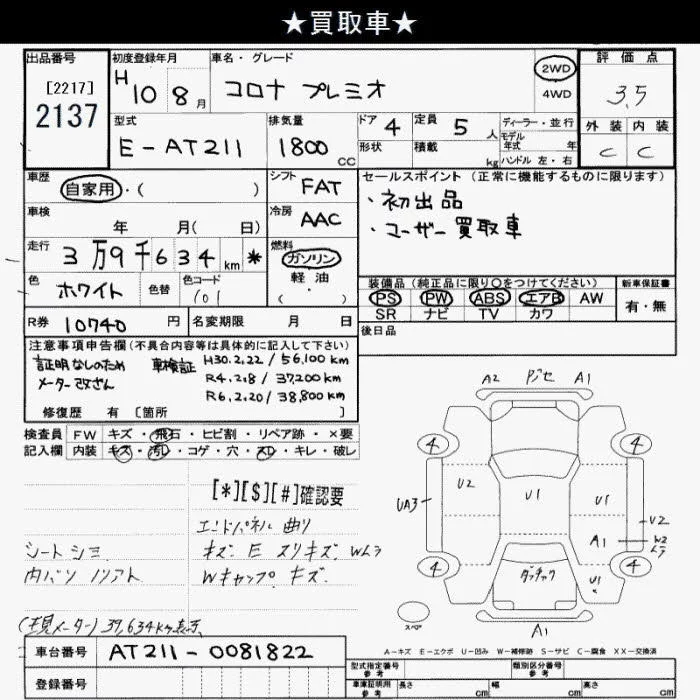 ★買取車★
出品番号 初度登録年月 車名・グレード 評価点
[2217] 2137 H10 8月 コロナ プレミオ 2WD 4WD 3.5
型式 排気量 ドア 4 定員 5人 ディーラー・並行 外装 内装
E-AT211 1800cc 形状 積載 kg モデル年式 年式 ハンドル 左・右 C C
車歴 自家用・( ) シフト FAT セールスポイント(正常に機能するものに限ります)
車検 年 月( 日) 冷房 AAC ・初出品
・ユーザー買取車
走行 3万9千634km * 燃料 ガソリン 軽油 ・( )
色 ホワイト 色替 色コード (0( 装備品(純正品に限り○をつけてください) 新車保証書
PS PW ABS エアB AW 有・無
SR ナビ TV カワ
R券 10740円 名変期限 月 日 後日品
注意事項申告欄(不具合内容等は具体的に記入して下さい)
証明なしのため 車検証 H30.2.22/56,100km
メーター改ざん R4.2.8/37,200km
R6.2.20/38,800km
修復歴 有 [箇所 ]
検査員 FW キズ・飛石・ヒビ割・リペア跡・×要
記入欄 内装 キズ・汚レ・コゲ・穴・スレ・キレ・破レ
[*][$][#]確認要
エンドパネル曲り
シートシミ キズ E スリキズ Wムラ
内バリノリアト Wキャップ キズ
(現メーター)39,634km表示
A2 A1
4 4
U2 U1 U1
UA3 U2
A1 W2 ムラ
4 4
U1
スペア A1
A-キズ E-エクボ U-凹み W-補修跡 S-サビ C-腐食 XX-交換済
車台番号 AT211-0081822
登録番号
型式指定番号 参考 類別区分番号 参考
車庫証明用 参考 長さ cm 幅 cm 高さ cm